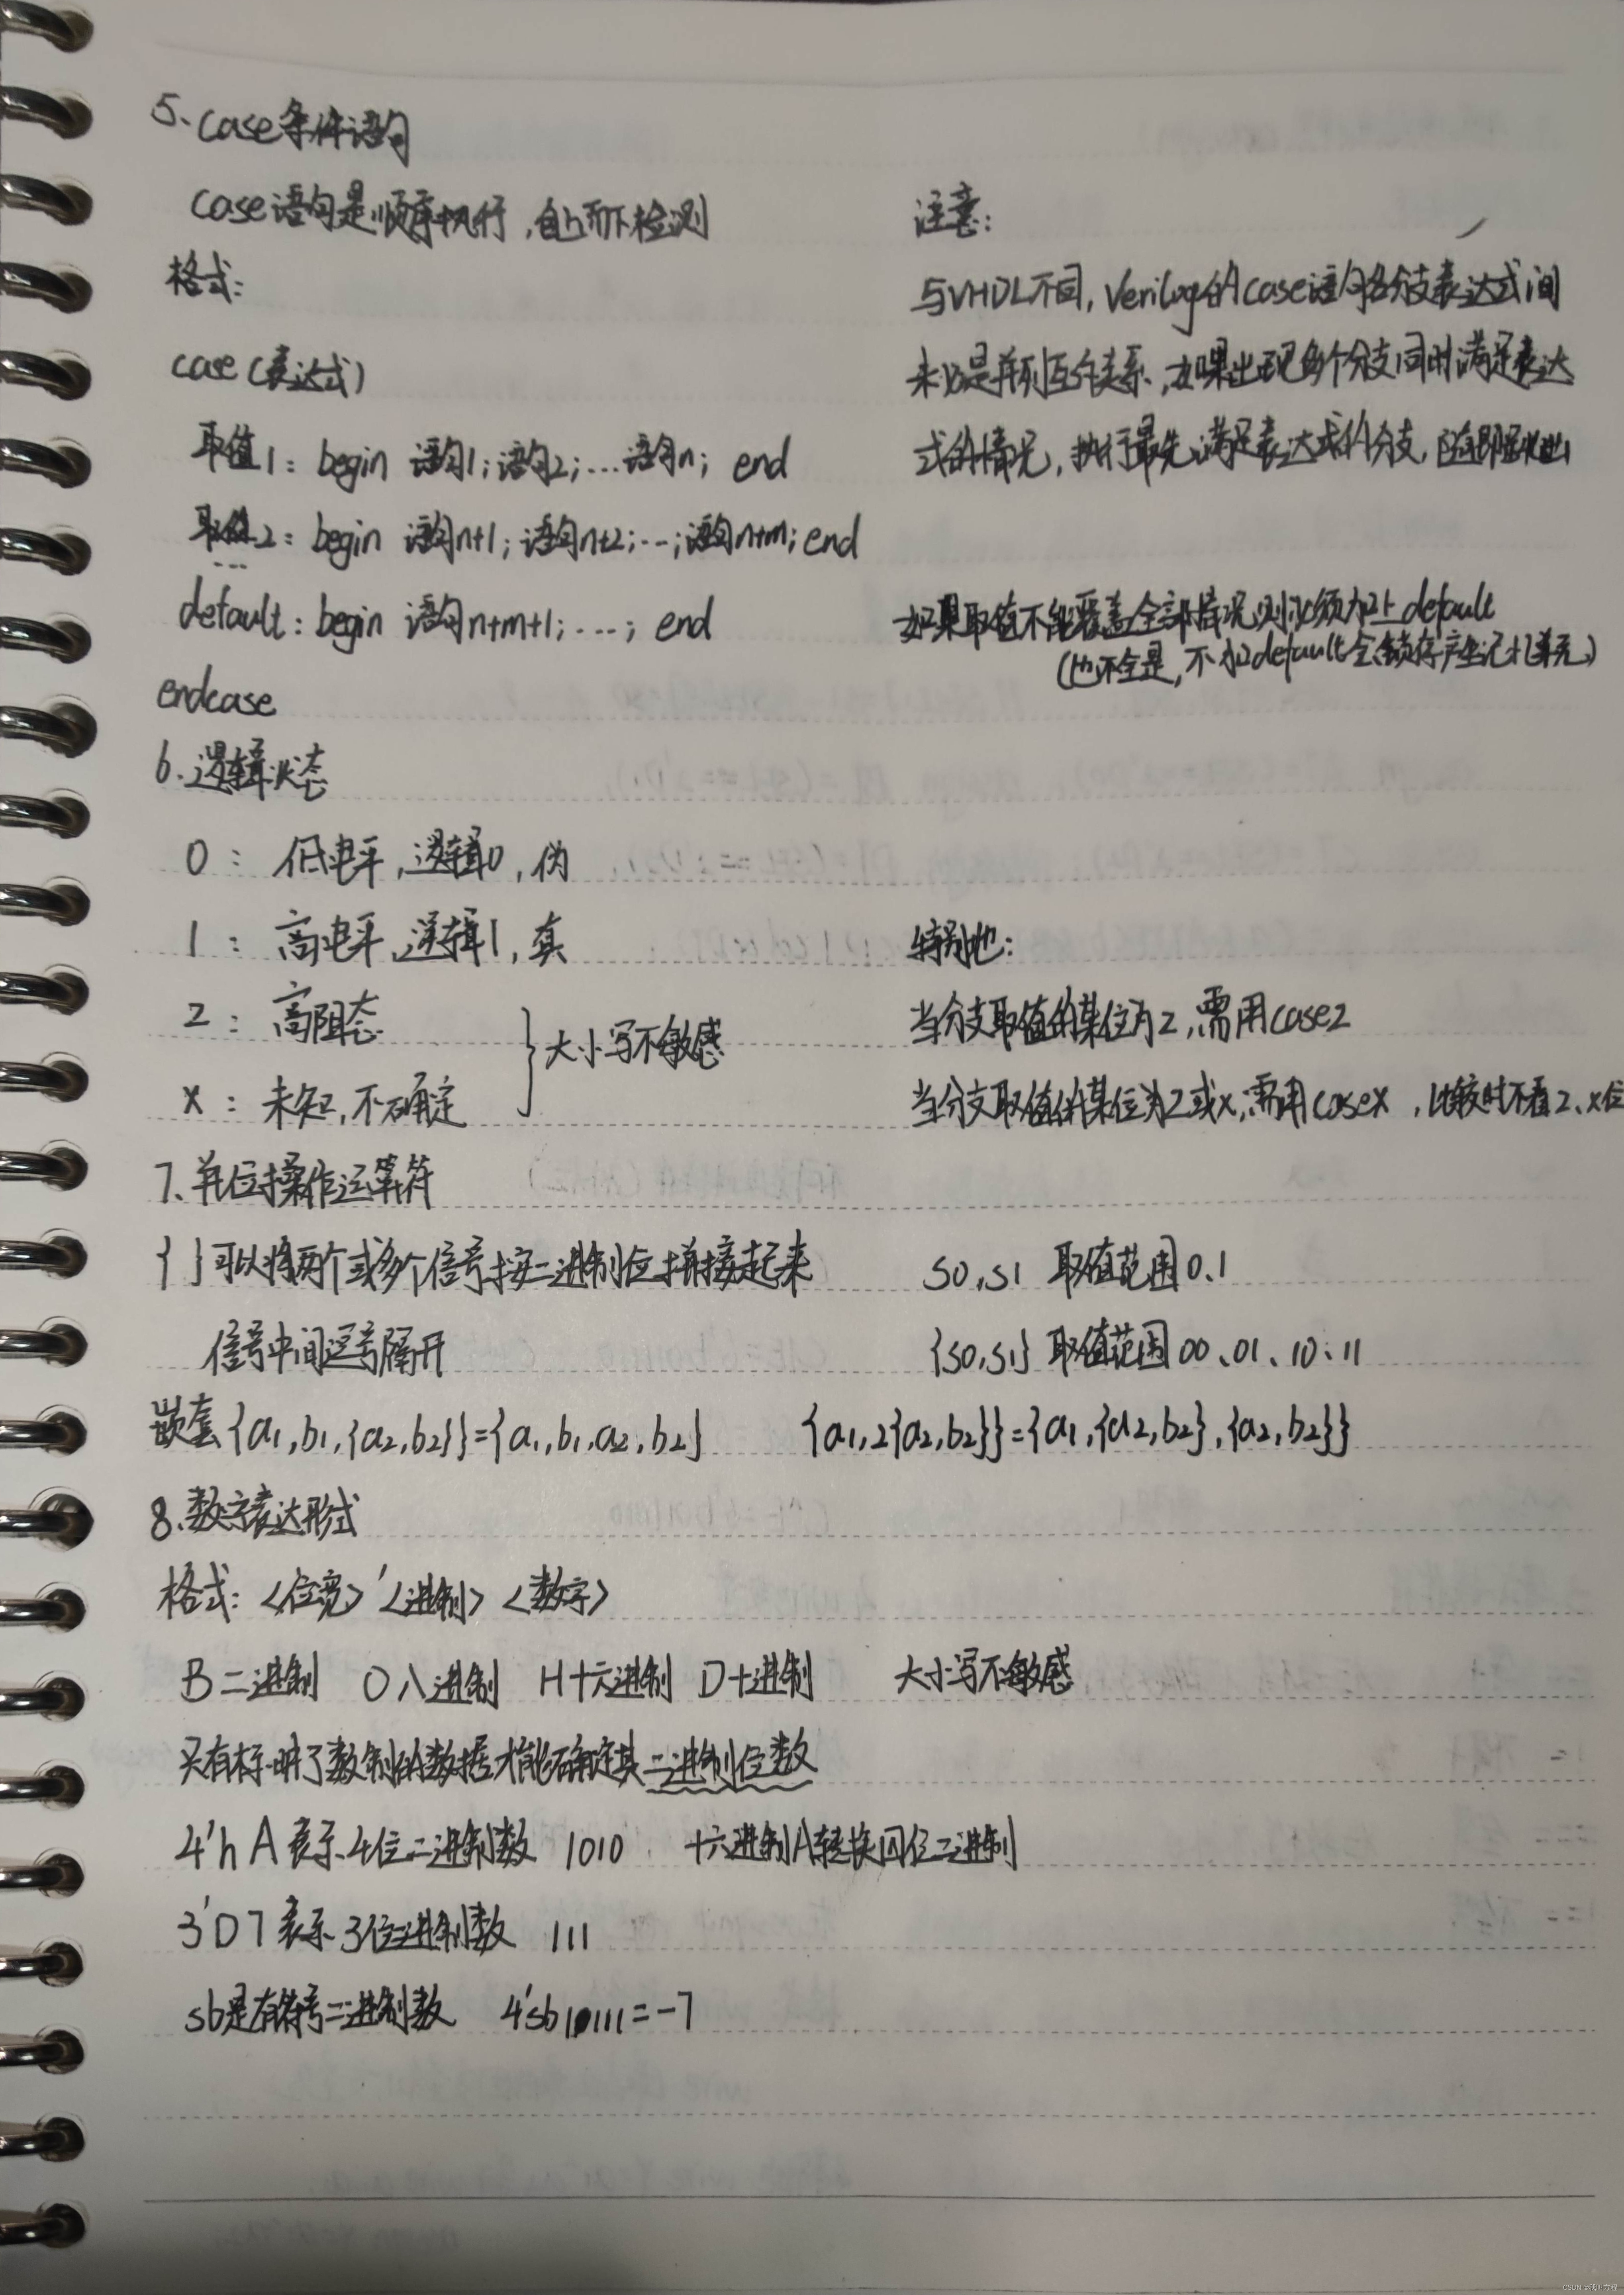 5、case条件语句
case语句是顺序执行，自上而下检测
注意：
格式：
与VHDL不同，Verilog的case语句各分支表达式间
case（表达式）
未必是并列互斥关系，如果出现多个分支同时满足表达
取值1：begin 语句1；语句2；…语句n； end
式的情况，执行最先满足表达式的分支，随即跳出
取值2：begin 语句n+1；语句n+2；…；语句n+m；end
…
default：begin 语句n+m+1；…； end
如果取值不能覆盖全部情况，则必须加上default
（也不全是，不加default会锁存产生记忆单元）
endcase
6、逻辑状态
0：低电平，逻辑0，伪
1：高电平，逻辑1，真
特别地：
z：高阻态
}大小写不敏感
当分支取值的某位为z，需用casez
x：未知，不确定
当分支取值的某位为z或x，需用casex，比较时不看z、x位
7、并位操作运算符
{ }可以将两个或多个信号按二进制位拼接起来
s0，s1 取值范围0、1
信号中间逗号隔开
{s0，s1} 取值范围00、01、10、11
嵌套{a1,b1,{a2,b2}}={a1,b1,a2,b2}
{a1,2{a2,b2}}={a1,{a2,b2},{a2,b2}}
8、数字表达形式
格式：<位宽>'<进制><数字>
B二进制 O八进制 H十六进制 D十进制 大小写不敏感
只有标明了数制的数据才能确定其二进制位数
4'hA表示4位二进制数 1010 十六进制A转换四位二进制
3'D7表示3位二进制数 111
sb是有符号二进制数 4'sb10111=-7